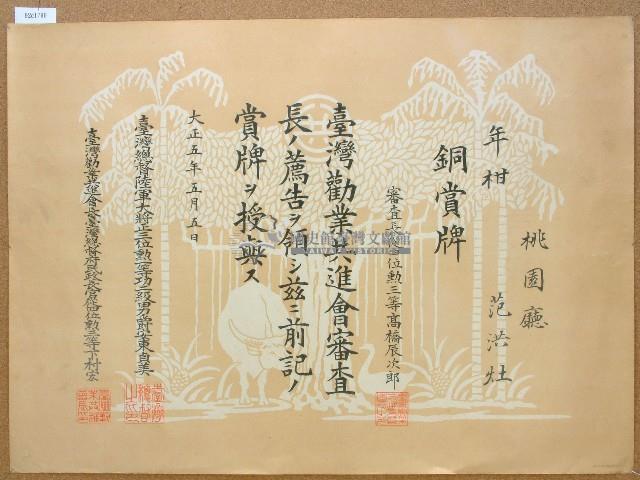 年柑
桃園廳
范洪灶
銅賞牌
審査長
位勲三等髙橋辰次郎
臺灣勸業共進會審査
長ノ薦告ヲ領シ茲ニ前記ノ
賞牌ヲ授與ス
大正五年五月五日
臺灣總督陸軍大將正三位勲一等功二級男爵安東貞美
臺灣勸業共進會長臺灣總督府民政長官從四位勲三等下村宏